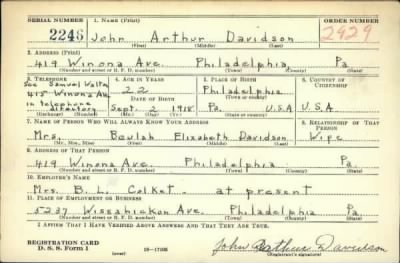 SERIAL NUMBER 1. NAME (Print) ORDER NUMBER
2246 John Arthur Davidson 2929
(First) (Middle) (Last)
2. ADDRESS (Print)
419 Winona Ave. Philadelphia Pa
(Number and street or R. F. D. number) (Town) (County) (State)
3. TELEPHONE 4. AGE IN YEARS 5. PLACE OF BIRTH 6. COUNTRY OF CITIZENSHIP
See Samuel
415 Winona Ave 22 Philadelphia
in telephone DATE OF BIRTH (Town or county)
directory Sept. 2 1918 Pa. USA U.S.A.
(Exchange) (Number) (Mo.) (Day) (Yr.) (State or country)
7. NAME OF PERSON WHO WILL ALWAYS KNOW YOUR ADDRESS 8. RELATIONSHIP OF THAT PERSON
Mrs. Beulah Elizabeth Davidson Wife
(Mr., Mrs., Miss) (First) (Middle) (Last)
9. ADDRESS OF THAT PERSON
419 Winona Ave. Philadelphia Pa
(Number and street or R. F. D. number) (Town) (County) (State)
10. EMPLOYER'S NAME
Mrs. B. L. Colket - at present
11. PLACE OF EMPLOYMENT OR BUSINESS
5237 Wissahickon Ave. Philadelphia Pa
(Number and street or R. F. D. number) (Town) (County) (State)
I AFFIRM THAT I HAVE VERIFIED ABOVE ANSWERS AND THAT THEY ARE TRUE.
REGISTRATION CARD
D. S. S. Form 1 (over) John Arthur Davidson
(Registrant's signature)